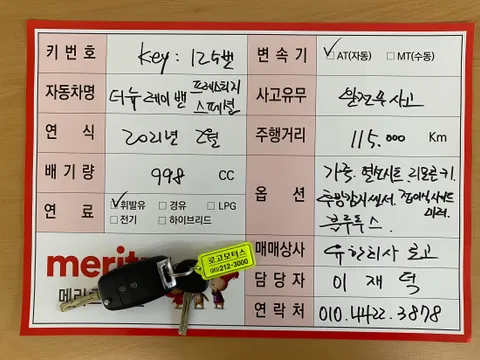 키 번 호 key : 125번 변 속 기 ☑AT(자동) □MT(수동)
자동차명 더뉴레이밴 프레스티지 스페셜 사고유무 완전무사고
연 식 2021년 2월 주행거리 115,000 Km
배 기 량 998 CC 옵 션 가죽. 열선시트 리모콘키.
후방감지센서. 접이식사이드미러.
블루투스.
연 료 ☑휘발유 □경유 □LPG
□전기 □하이브리드
meritz 매매상사 유한회사 로고
메리 담 당 자 이 재 덕
연 락 처 010.4422.3878
로고모터스
212-3000